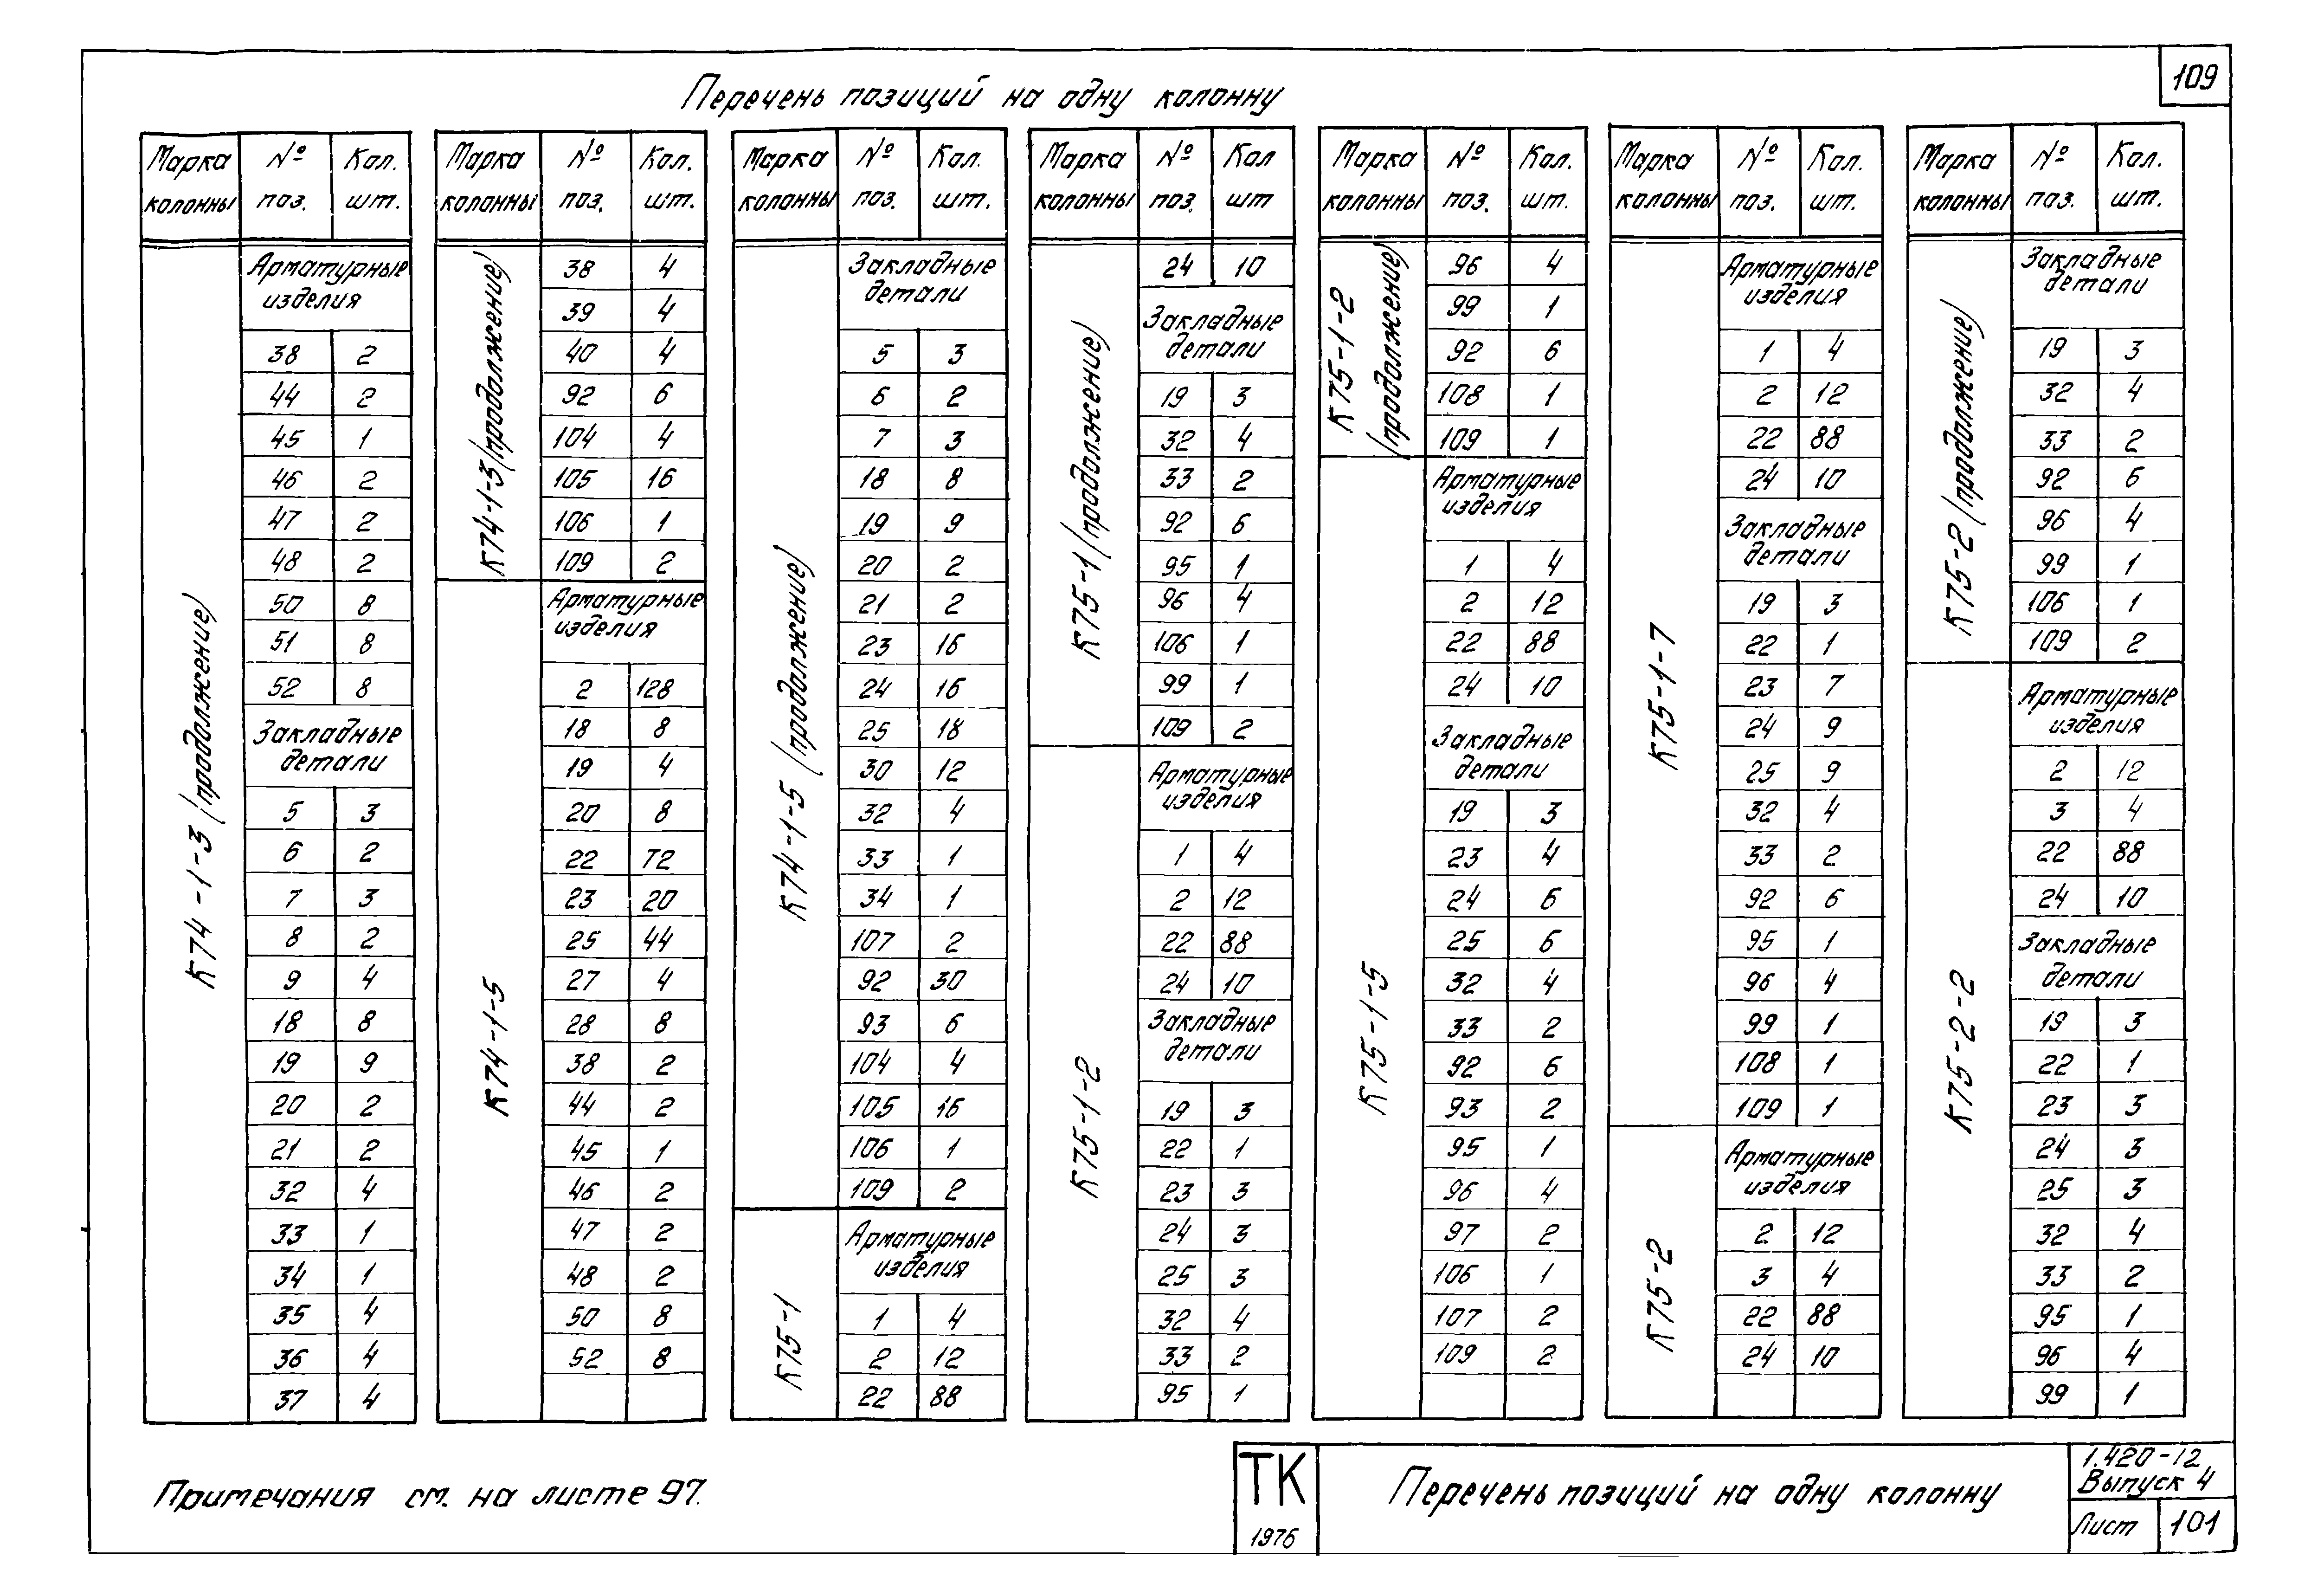 109
Перечень позиций на одну колонну
Марка колонны | № поз. | Кол. шт.
К74-1-3 (продолжение)
Арматурные изделия
38 2
44 2
45 1
46 2
47 2
48 2
50 8
51 8
52 8
Закладные детали
5 3
6 2
7 3
8 2
9 4
18 8
19 9
20 2
21 2
32 4
33 1
34 1
35 4
36 4
37 4
Марка колонны | № поз. | Кол. шт.
К74-1-3 (продолжение)
38 4
39 4
40 4
92 6
104 4
105 16
106 1
109 2
К74-1-5
Арматурные изделия
2 128
18 8
19 4
20 8
22 72
23 20
25 44
27 4
28 8
38 2
44 2
45 1
46 2
47 2
48 2
50 8
52 8
Марка колонны | № поз. | Кол. шт.
К74-1-5 (продолжение)
Закладные детали
5 3
6 2
7 3
18 8
19 9
20 2
21 2
23 16
24 16
25 18
30 12
32 4
33 1
34 1
107 2
92 30
93 6
104 4
105 16
106 1
109 2
К75-1
Арматурные изделия
1 4
2 12
22 88
Марка колонны | № поз. | Кол шт
К75-1 (продолжение)
24 10
Закладные детали
19 3
32 4
33 2
92 6
95 1
96 4
106 1
99 1
109 2
К75-1-2
Арматурные изделия
1 4
2 12
22 88
24 10
Закладные детали
19 3
22 1
23 3
24 3
25 3
32 4
33 2
95 1
Марка колонны | № поз. | Кол. шт.
К75-1-2 (продолжение)
96 4
99 1
92 6
108 1
109 1
К75-1-5
Арматурные изделия
1 4
2 12
22 88
24 10
Закладные детали
19 3
23 4
24 6
25 6
32 4
33 2
92 6
93 2
95 1
96 4
97 2
106 1
107 2
109 2
Марка колонны | № поз. | Кол. шт.
К75-1-7
Арматурные изделия
1 4
2 12
22 88
24 10
Закладные детали
19 3
22 1
23 7
24 9
25 9
32 4
33 2
92 6
95 1
96 4
99 1
108 1
109 1
К75-2
Арматурные изделия
2 12
3 4
22 88
24 10
Марка колонны | № поз. | Кол. шт.
К75-2 (продолжение)
Закладные детали
19 3
32 4
33 2
92 6
96 4
99 1
106 1
109 2
К75-2-2
Арматурные изделия
2 12
3 4
22 88
24 10
Закладные детали
19 3
22 1
23 3
24 3
25 3
32 4
33 2
95 1
96 4
99 1
Примечания см. на листе 97.
ТК
1976
Перечень позиций на одну колонну
1.420-12
Выпуск 4
Лист 101